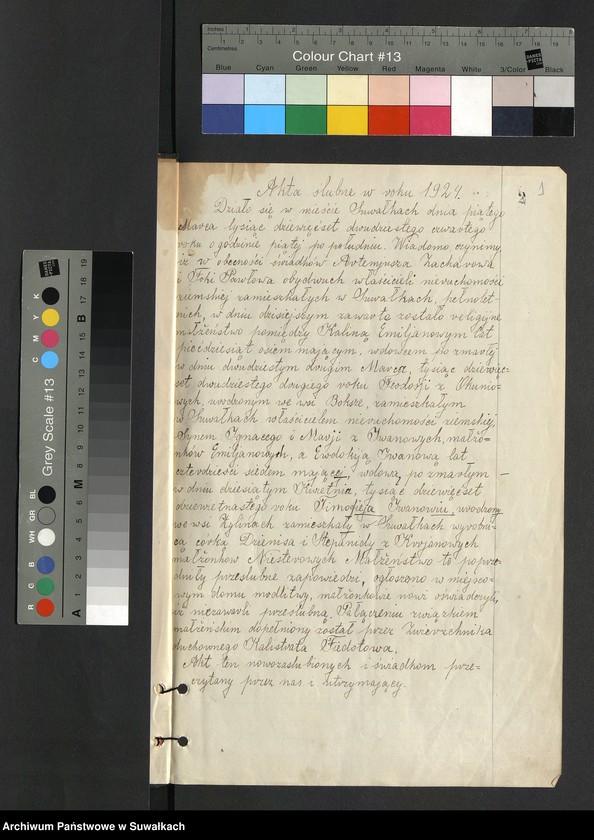 Inches 1 2 3 4 5 6 7 8
Centimetres 1 2 3 4 5 6 7 8 9 10 11 12 13 14 15 16 17 18 19
Colour Chart #13
Blue Cyan Green Yellow Red Magenta White 3/Color Black
DANES PICTA
Grey Scale #13
C M Y K
R G B WH GR BL
A 1 2 3 4 5 6 M 8 9 10 11 12 13 14 15 B 17 18 19
2 1
Akta ślubne w roku 1924.
Działo się w mieście Suwałkach dnia piątego
Marca tysiąc dziewięćset dwudziestego czwartego
roku o godzinie piątej po południu. Wiadomo czynimy,
iż w obecności świadków Artemjusza Zacharowa
i Foki Pawłowa obydwuch właścicieli nieruchomości
ziemskiej zamieszkałych w Suwałkach, pełnolet-
nich, w dniu dzisiejszym zawarte zostało religijne
małżeństwo pomiędzy Kaliną Emiljanowym lat
pięćdziesiąt osiem mającym, wdowcem po zmarłej
w dniu dwudziestym drugim Marca, tysiąc dziewięć-
set dwudziestego drugiego roku Teodorji z
wych, urodzonym we wsiBoksze, zamieszkałym
w Suwałkach właścicielem nieruchomości ziemskiej,
Synem Ignacego i Marji z Iwanowych, małżo-
nków Emiljanowych, a Ewdokją Iwanową lat
czterdzieści siedem mającej, wdową po zmarłym
w dniu dziesiątym Kwietnia, tysiąc dziewięćset
dziewiętnastego roku Timofieja Iwanowiu, urodzoną
we wsi Żylinach zamieszkały w Suwałkach wyrobni-
cą córką Dzienisa i Stepanidy z
małżonków Niesterowych Małżeństwo to poprze-
dziły przedślubne zapowiedzi, ogłoszone w miejsco-
wym domu modlitwy, małżonkowie nowi oświadczyli,
iż niezawarli przedślubną. Połączeniu związkiem
małżeńskim dopełniony został przez Zwierzchnika
duchownego Kalistrata Fadotowa.
Akt ten nowozaślubionych i świadkom prze-
czytany przez nas i utrzymający.
Archiwum Państwowe w Suwałkach